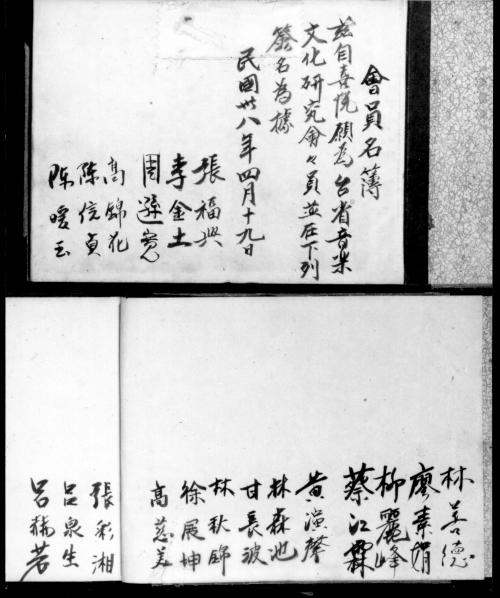 會員名簿
茲自喜悅願為台省音樂
文化研究會々員並在下列
簽名為據
民國卅八年四月十九日
張福興
李金土
周遜寬
高錦花
陳信貞
陈暖玉
林善德
廖素娟
柳麗峰
蔡江霖
黃演馨
林森池
甘長波
林秋錦
徐展坤
高慈美
張彩湘
呂泉生